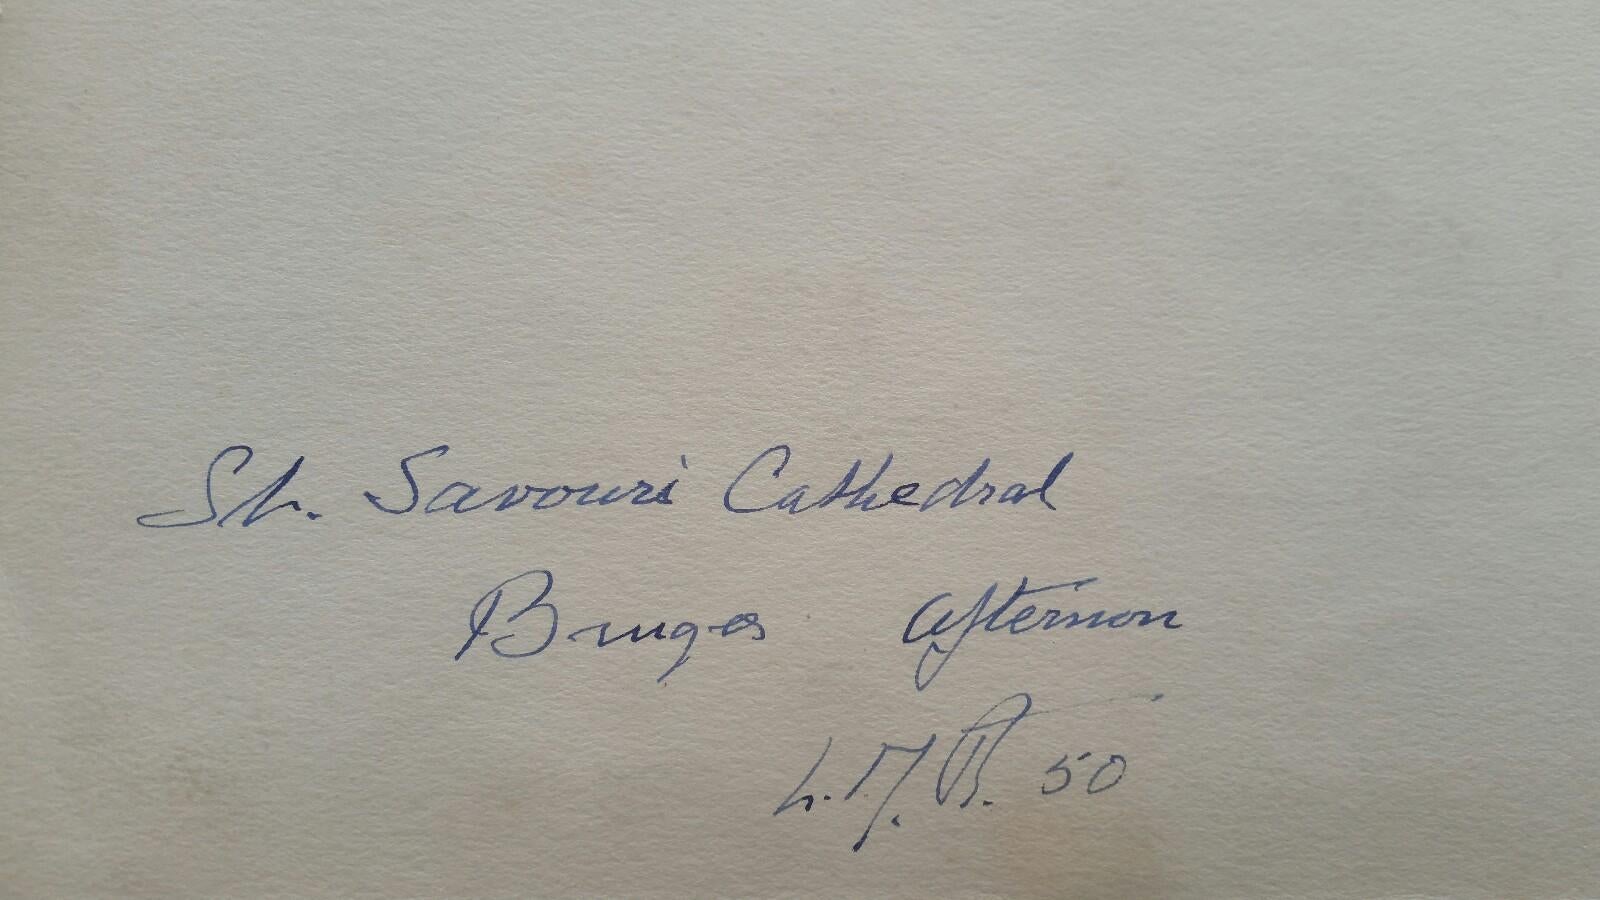 St. Savouri Cathedral
Bruges afternon
L.M.B. 50